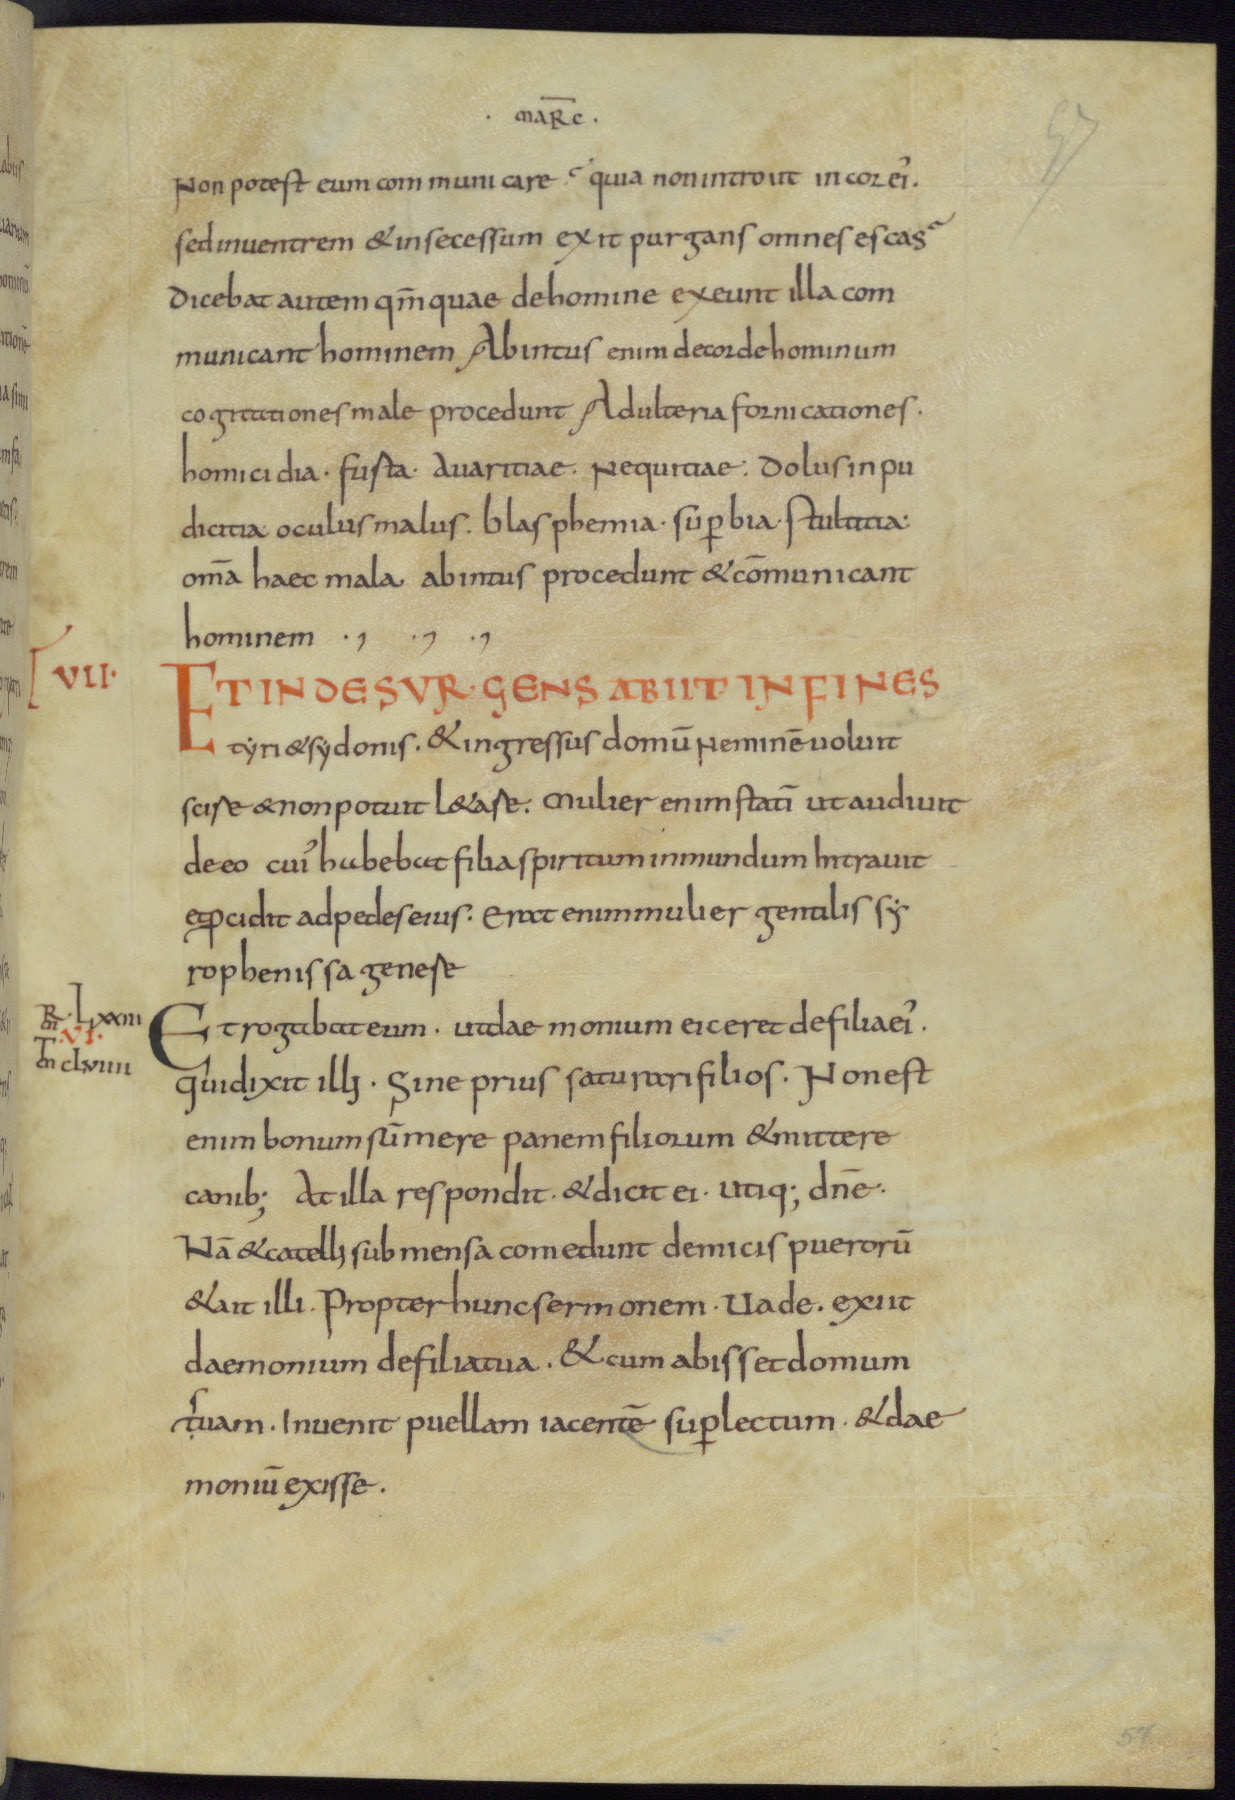 . MARC̄ .
57
Non potest eum communicare quia non introiit in cor eı̓.
sed in uentrem & in secessum exit purgans omnes escas
Dicebat autem qm̄ quae de homine exeunt illa com
municant hominem Ab intus enim de corde hominum
cogitationes male procedunt Adulteria fornicationes.
homicidia. fusta. Auaritiae. Nequitiae. Dolus inpu
dicitia oculus malus. blasphemia. sup̱bia. stultitia.
om̄a haec mala ab intus procedunt & cōmunicant
hominem ., ., .,
VII.
ET INDE SVR.GENS ABIIT.IN FINES
tẏri & sẏdonis. & ingressus domū Neminē uoluit
scise & non potuit l&ase. Mulier enim statī ut audiuit
de eo cuı̓ habebat filia spiritum inmundum Intrauit
et p̱cidit ad pedes eius. Erat enim mulier gentilis sẏ
rophenissa genese
R Lxxııı
m VI.
T
m clvıııı
Et rogabat eum. ut daemonium eiceret de filia eı̓.
qui dixit illi. Sine prius saturari filios. Non est
enim bonum sūmere panem filiorum & mittere
canib; At illa respondit. & dicit ei. utiq; dn̄e.
Nā & catelli sub mensa comedunt de micis puerorū
& ait illi. Propter hunc sermonem. Uade. exiit
daemonium de filia tua. & cum abisset domum
s
tuam. Inuenit puellam iacentē sup̱ lectum. & dae
moniū exisse.
57